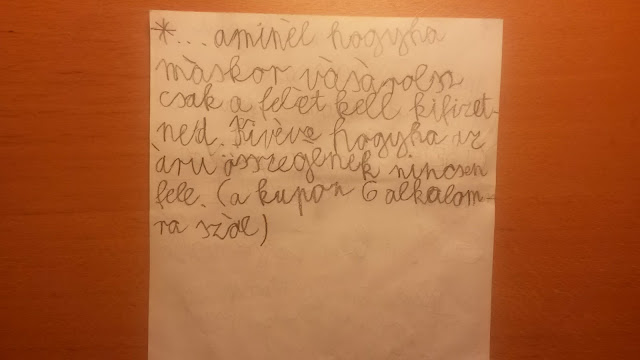 *... aminèl hogyha
màskor vàsàrolsz
csak a felèt kell kifizet-
ned. Kivève hogyha az
àru összegènek nincsen
fele. (a kupon 6 alkalom-
ra szòl)